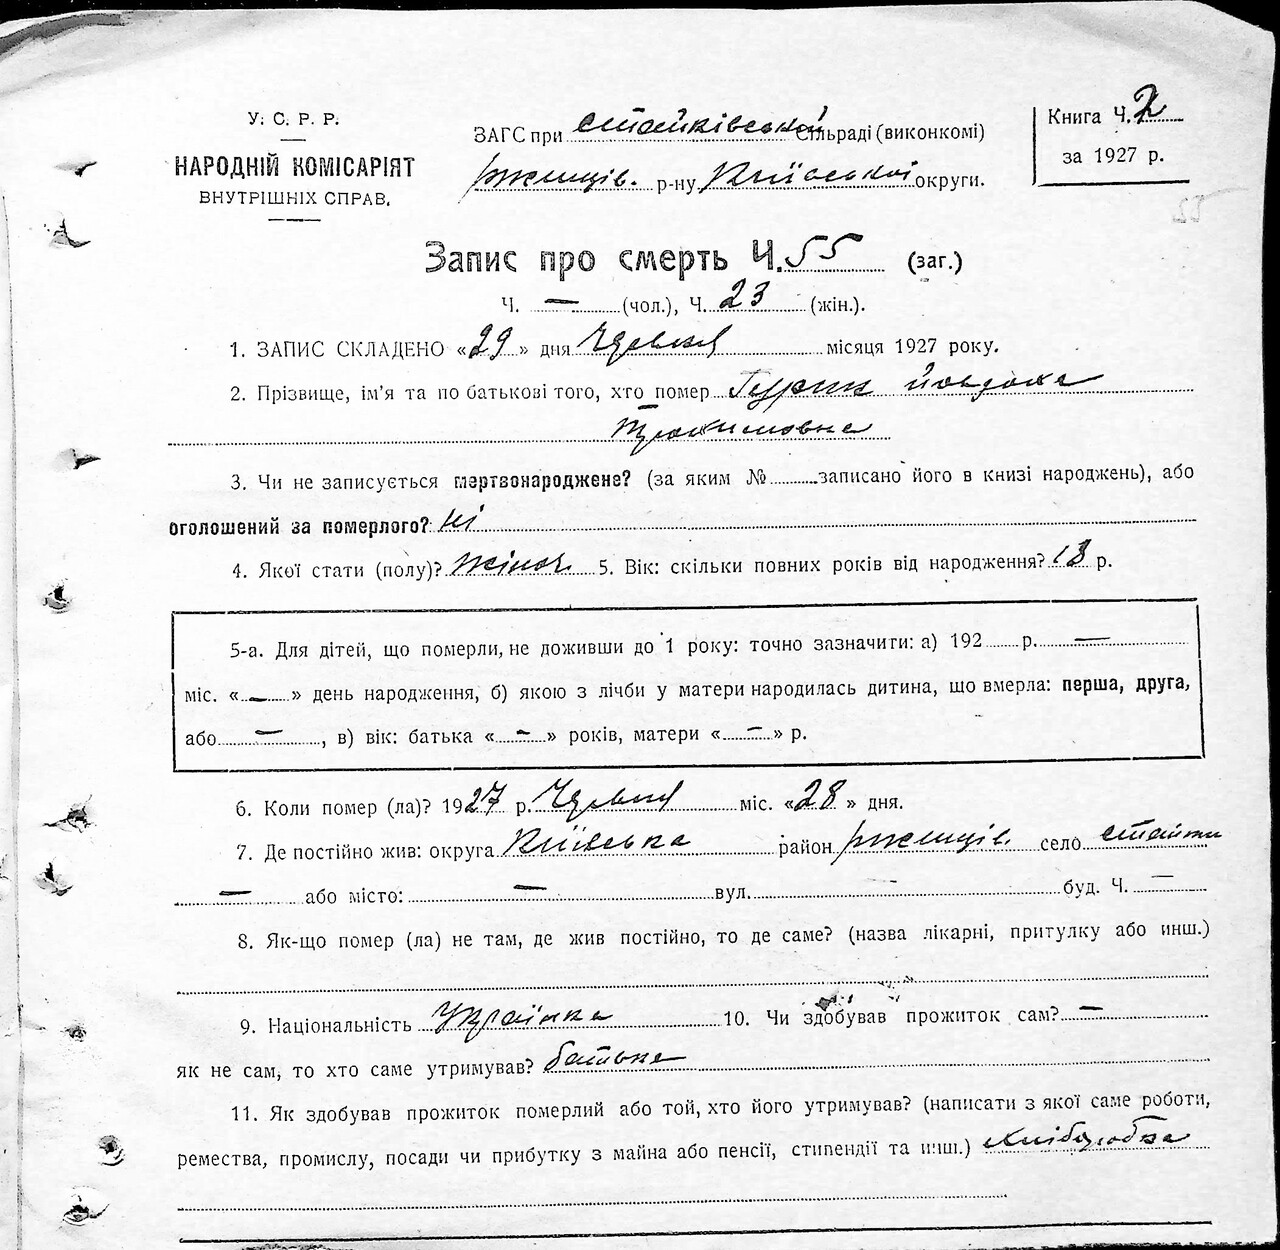 У. С. Р. Р.
НАРОДНІЙ КОМІСАРІЯТ
ВНУТРІШНІХ СПРАВ.
ЗАГС при Стайківській сільраді (виконкомі)
Ржищів. р-ну Київської округи.
Книга Ч. 2
за 1927 р.
Запис про смерть Ч. 55 (заг.)
Ч. — (чол.), Ч. 23 (жін.).
1. ЗАПИС СКЛАДЕНО «29» дня місяця 1927 року.
2. Прізвище, ім'я та по батькові того, хто помер Гурин Йовдоха
3. Чи не записується мертвонароджене? (за яким № записано його в книзі народжень), або
оголошений за померлого? ні
4. Якої стати (полу)? жіноч. 5. Вік: скільки повних років від народження? 18 р.
5-а. Для дітей, що померли, не доживши до 1 року: точно зазначити: а) 192 р. —
міс. «—» день народження, б) якою з лічби у матери народилась дитина, що вмерла: перша, друга,
або —, в) вік: батька «—» років, матери «—» р.
6. Коли помер (ла)? 1927 р. міс. «28» дня.
7. Де постійно жив: округа Київська район Ржищів. село Стайки
— або місто: — вул. – буд. Ч. —
8. Як-що помер (ла) не там, де жив постійно, то де саме? (назва лікарні, притулку або инш.)
9. Національність Українка 10. Чи здобував прожиток сам? —
як не сам, то хто саме утримував? батько
11. Як здобував прожиток померлий або той, хто його утримував? (написати з якої саме роботи,
ремества, промислу, посади чи прибутку з майна або пенсії, стипендії та инш.)